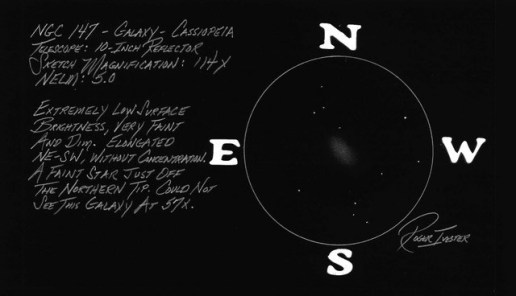 NGC 147 - Galaxy - Cassiopeia
Telescope: 10-Inch Reflector
Sketch Magnification: 114X
NELM: 5.0
Extremely Low Surface
Brightness, Very Faint
And Dim. Elongated
NE-SW, Without Concentration.
A Faint Star Just Off
The Northern Tip. Could Not
See This Galaxy At 57x.
N
E
W
S
Roger Ivester